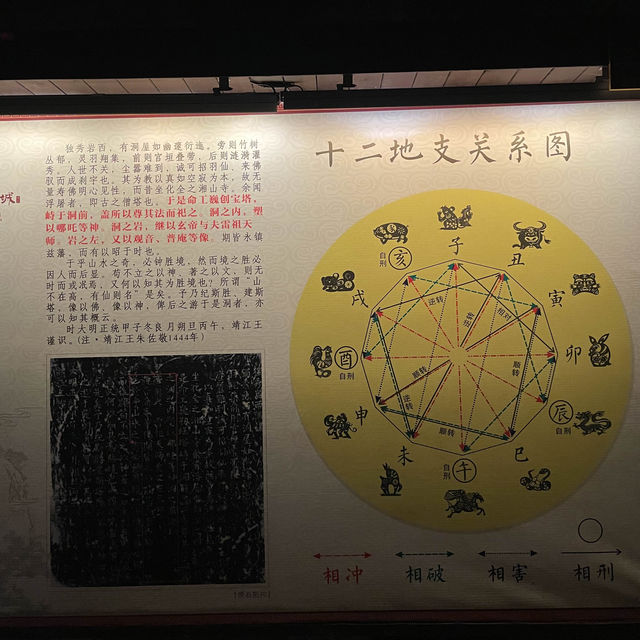 城
独秀岩西，有洞屋如幽邃衍迤。旁则竹树
丛郁，灵羽翔集，前则官垣叠带，后则涟漪濯
秀。人世不关，尘嚣难到，诚可招羽仙、来佛
驭而成刹宇也。其为教以真如空寂为本，故无
量寿佛明心见性，而昔坐化全之湘山寺。余闻
浮屠者，即古之僧塔也。于是命工巍创宝塔，
峙于洞前，盖所以尊其法而祀之。洞之内，塑
以哪吒等神。洞之岩，继以玄帝与夫雷祖天
师。岩之左，又以观音、普庵等像。期皆永镇
兹藩，而有以昭于时也。
于乎山水之奇，必钟胜境，然而境之胜必
因人而后显。苟不立之以神，著之以文，则无
时而或泯焉，又何以知其为胜境也？所谓“山
不在高，有仙则名”是矣。予乃纪斯胜，建斯
塔，像以佛，像以神，俾后之游于是洞者，亦
可以知其概云。
时大明正统甲子冬良月朔旦丙午，靖江王
谨识。(注·靖江王朱佐敬1444年)
十二地支关系图
子
丑
寅
卯
辰
自刑
巳
午
自刑
未
申
酉
自刑
戌
亥
自刑
逆转
逆转
相对
顺转
顺转
逆转
顺转
相冲
相破
相害
相刑